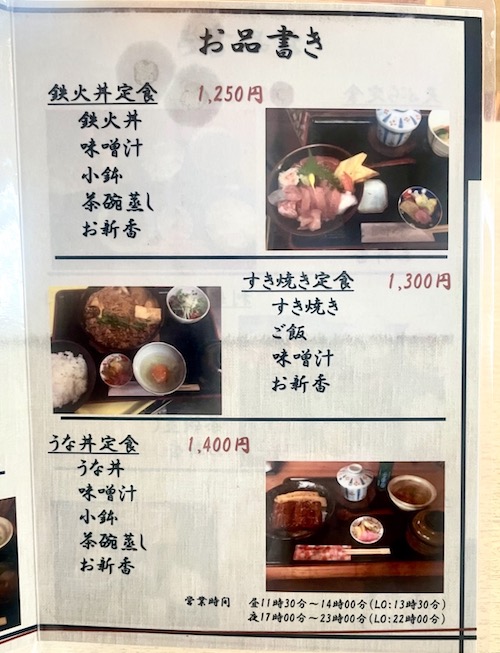 お品書き
鉄火丼定食 1,250円
鉄火丼
味噌汁
小鉢
茶碗蒸し
お新香
すき焼き定食 1,300円
すき焼き
ご飯
味噌汁
お新香
うな丼定食 1,400円
うな丼
味噌汁
小鉢
茶碗蒸し
お新香
営業時間 昼11時30分～14時00分(LO:13時30分)
夜17時00分～23時00分(LO:22時00分)